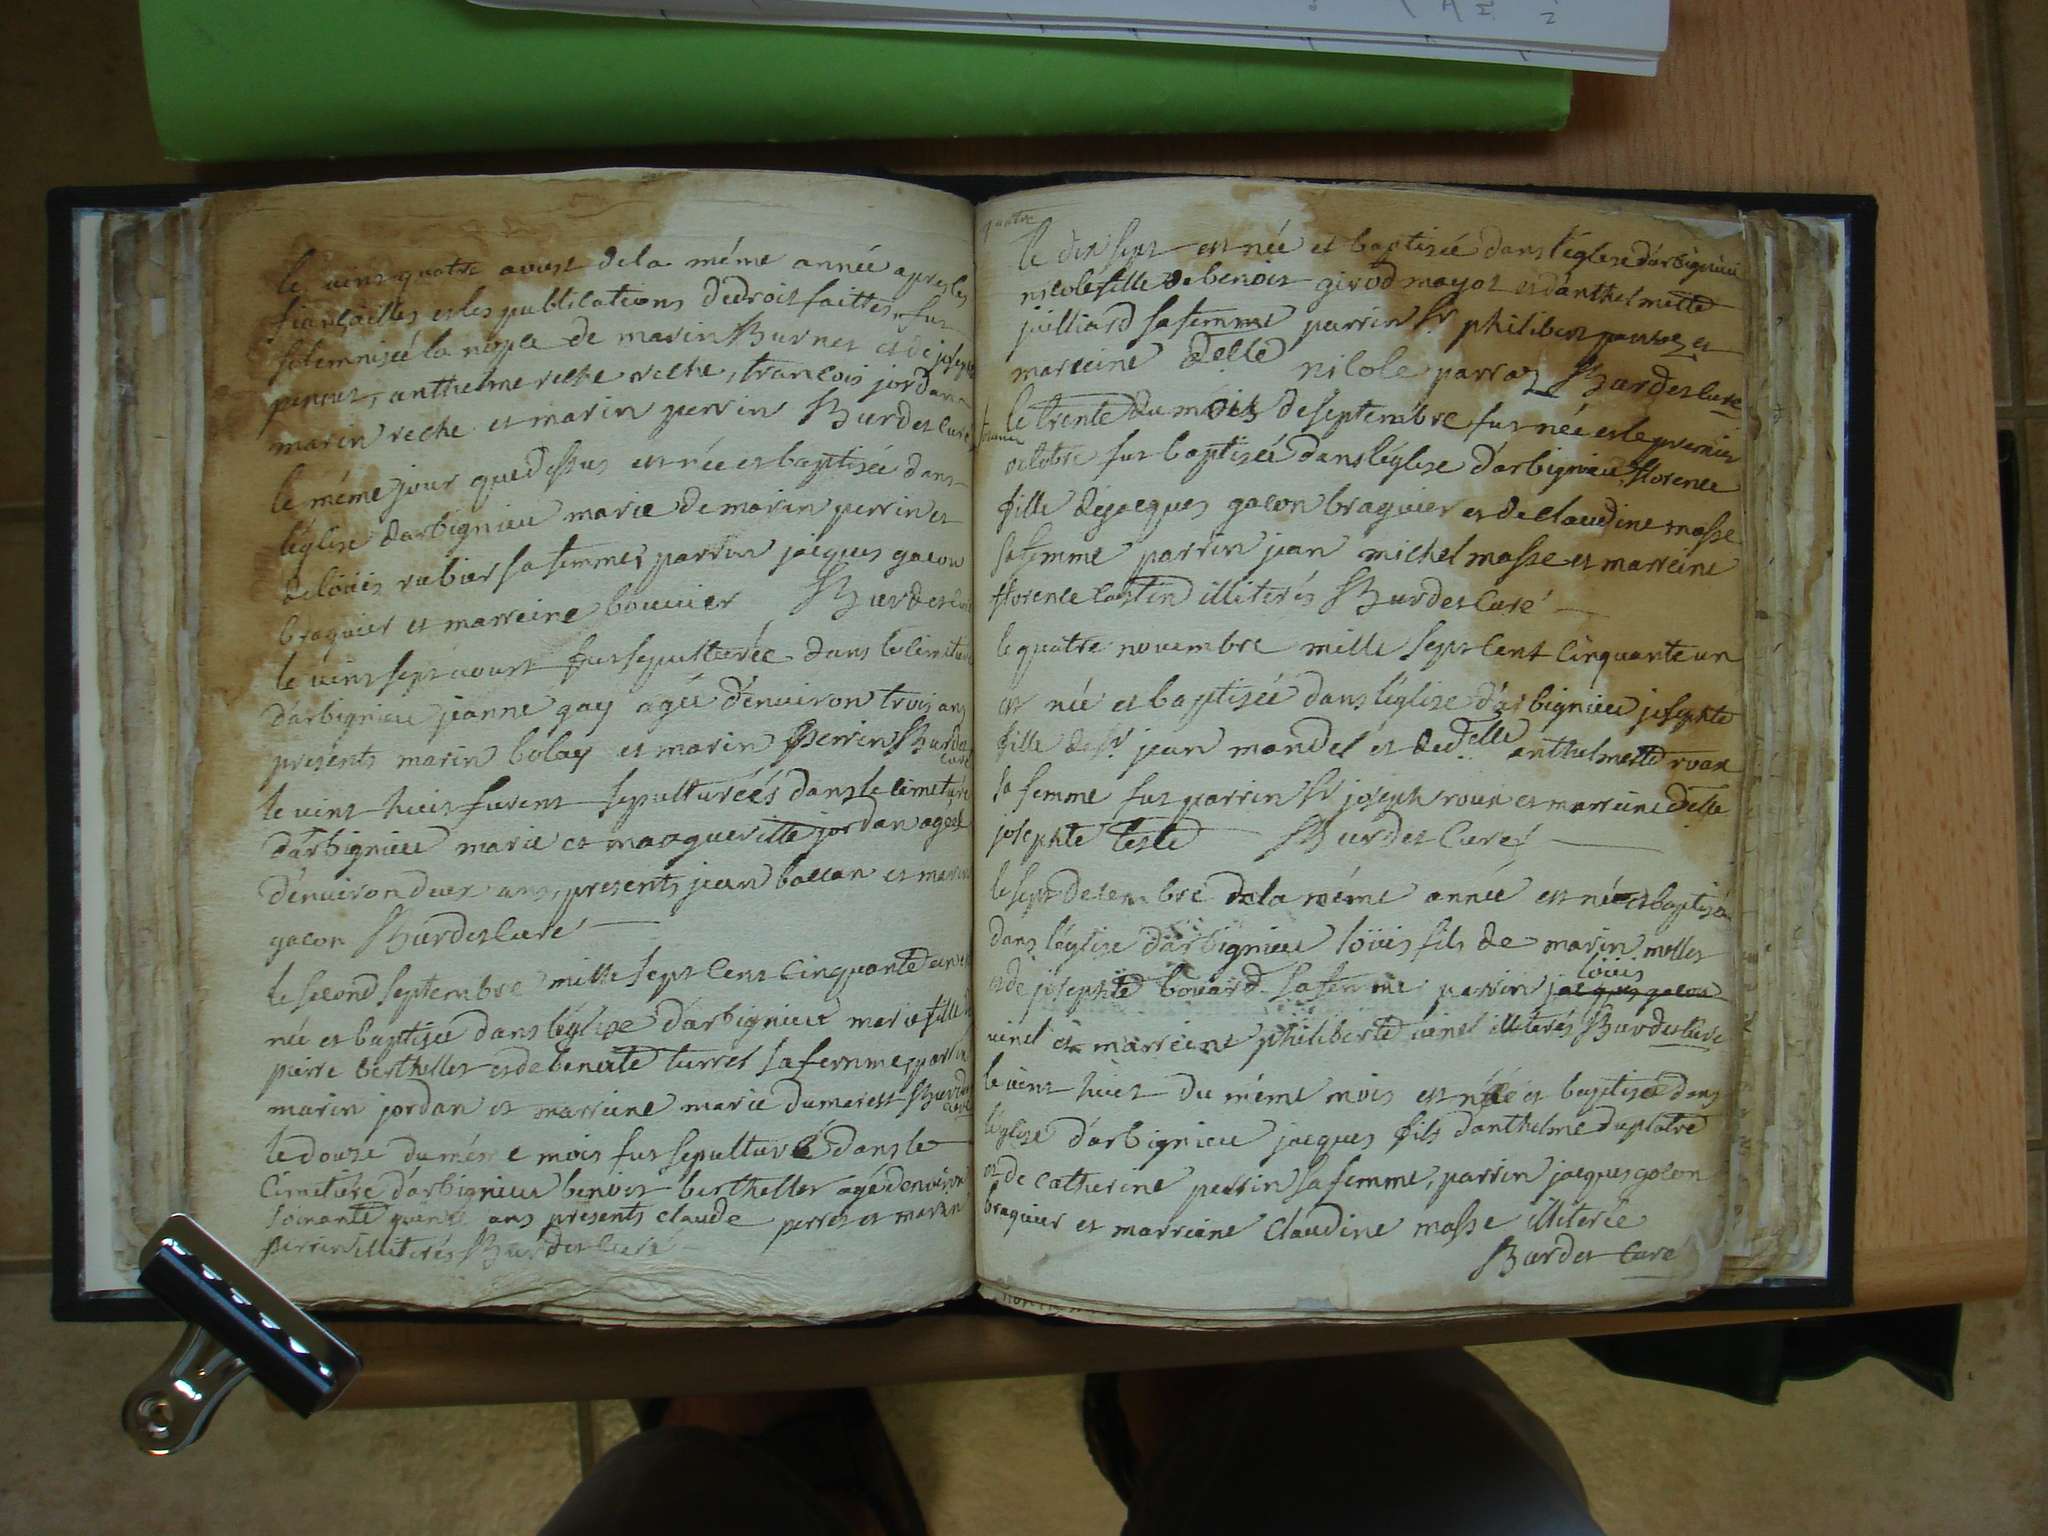 le vint quatre aoust dela méme année apres les
fiançailles et les publications dedroit faittes fut
solemnisée la nopce de marin Burnet et de josephte
perret, anthelme reche reche, francois jordan
marin reche et marin perrin Burdet Curé
le méme jour que dessus est née et baptisée dans
léglise darbignieu marie de marin perrin et
de loüise rubier sa femme, parrin jacques gacon
braguier et marreine bouvier Burdet Curé
le vint sept aoust fut sepulturée dans le cimitiere
darbignieu jeanne gay agée d'environ trois ans
presents marin bolay et marin perrin Burdet
Curé
le vint huit furent sepulturéés dans le cimetiére
d'arbignieu marie et margueritte jordan agées
d'environ deux ans, presents jean ballan et marin
gacon Burdet Curé
le second septembre mille sept cent cinquante un est
née et baptisée dans léglise d'arbignieu marie fille de
pierre berthellet et de benoite turrel sa femme, parrin
marin jordan et marreine marie dumarest Burdet
Curé
le douze du méme mois fut sepulturé dans le
Cimetiére d'arbignieu benoit berthellet agé denviron
soixante quinze ans presents claude perret et marin
perrin illiterés Burdet Curé
quatre
le dix sept est née et baptisée dans l'église d'arbignieu
nicole fille de benoit girod mayot et d'anthelmette
juilliard sa femme parrin Sr philibert parraz et
marreine Delle nicole parraz Burdet Curé
le trente du mois de septembre fut née et le premier
octobre fut baptisée dans l'église d'arbignieu florence
fille de jacques gacon braguier et de claudine masse
sa femme parrin jean michel masse et marreine
florence Costin illiterés Burdet Curé
le quatre novembre mille sept cent cinquante un
est née et baptisée dans l'église d'arbignieu josephte
fille de Sr jean mandel et de Delle anthelmette roux
sa femme fut parrin Sr joseph roux et marreine Delle
josephte teste Burdet Curé
le sept decembre dela méme année est né et baptisé
dans léglise d'arbignieu loüis fils de marin mollet
et de josephte bovard sa femme parrin jacques gacon
loüis
vinet et marreine philiberte vinet illiterés Burdet Curé
le vint huit du méme mois est né et baptisé dans
léglise d'arbignieu jacques fils d'anthelme duplatre
et de Catherine perrin sa femme, parrin jacques gacon
braguier et marreine Claudine masse illiterée
Burdet Curé